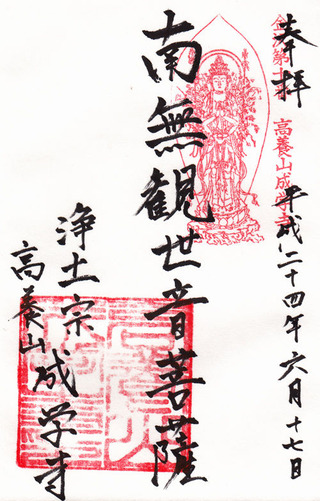 奉拝
平成二十四年六月十七日
高養山成学寺
南無観世音菩薩
浄土宗
高養山 成学寺